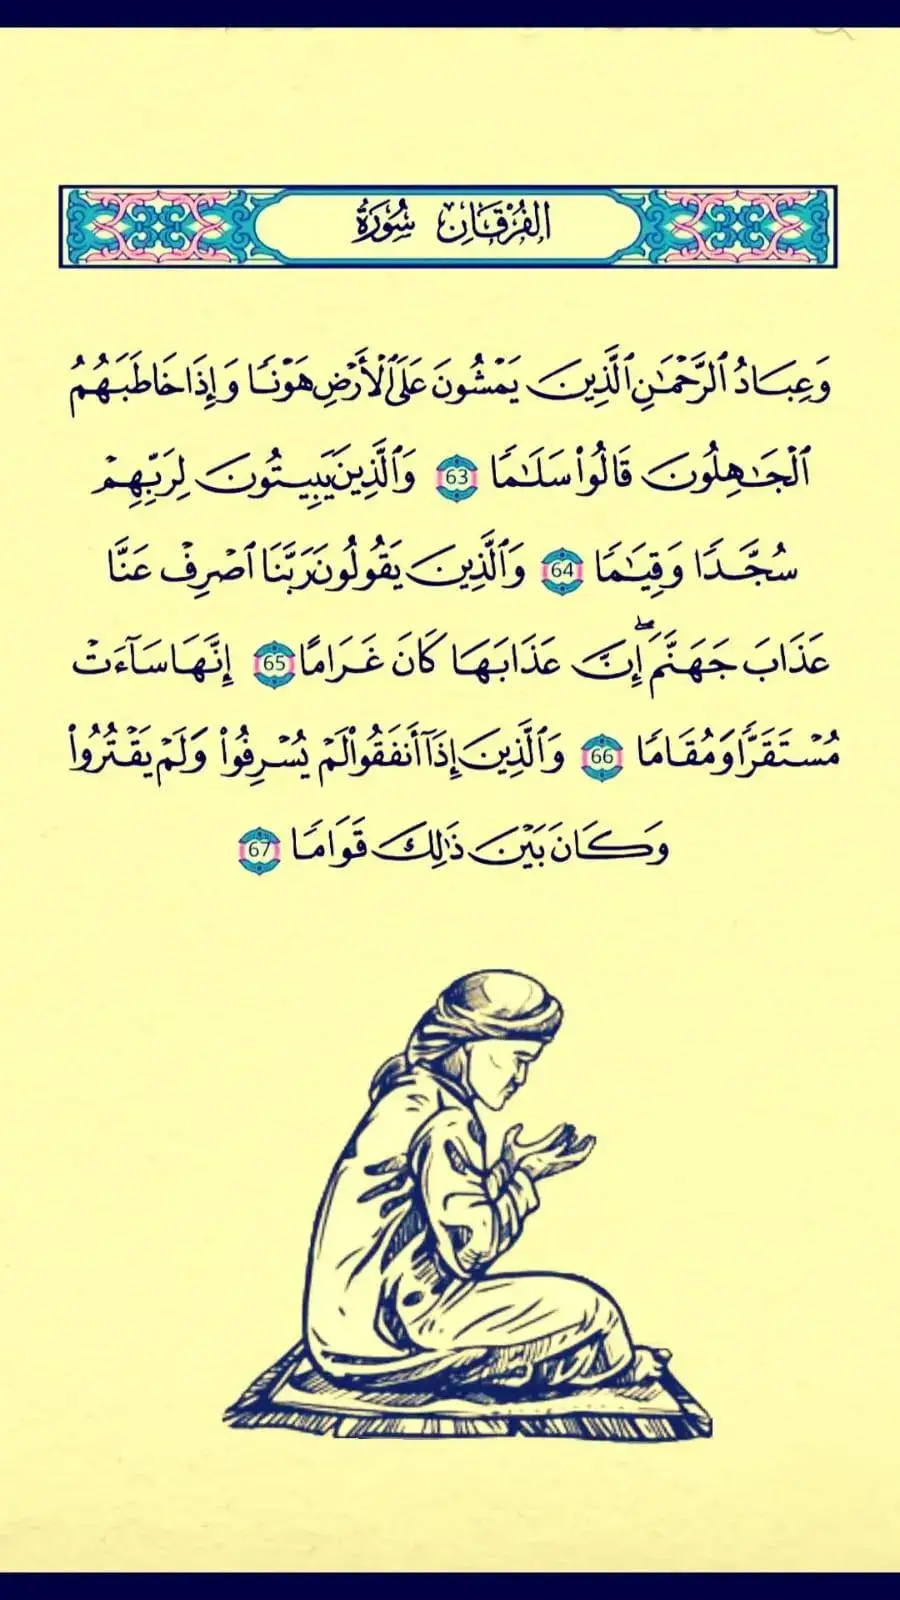 الفُرْقَان سُورَة
وَعِبَادُ ٱلرَّحْمَٰنِ ٱلَّذِينَ يَمْشُونَ عَلَى ٱلْأَرْضِ هَوْنًا وَإِذَا خَاطَبَهُمُ
ٱلْجَٰهِلُونَ قَالُوا۟ سَلَٰمًا 63 وَٱلَّذِينَ يَبِيتُونَ لِرَبِّهِمْ
سُجَّدًا وَقِيَٰمًا 64 وَٱلَّذِينَ يَقُولُونَ رَبَّنَا ٱصْرِفْ عَنَّا
عَذَابَ جَهَنَّمَ ۖ إِنَّ عَذَابَهَا كَانَ غَرَامًا 65 إِنَّهَا سَآءَتْ
مُسْتَقَرًّا وَمُقَامًا 66 وَٱلَّذِينَ إِذَآ أَنفَقُوا۟ لَمْ يُسْرِفُوا۟ وَلَمْ يَقْتُرُوا۟
وَكَانَ بَيْنَ ذَٰلِكَ قَوَامًا 67